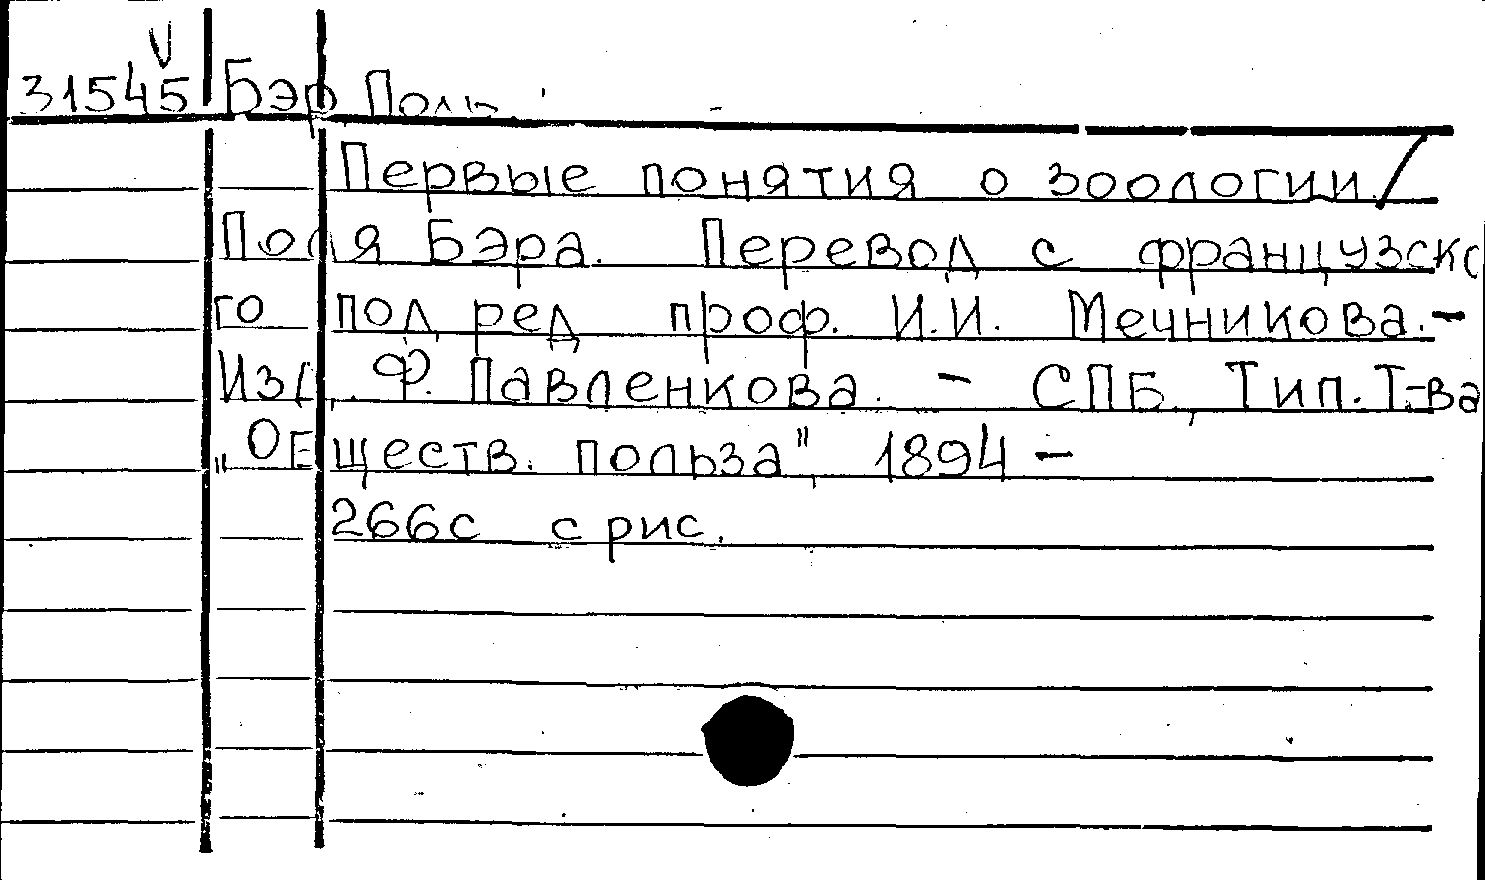 V
31545 Бэр Поль
Первые понятия о зоологии /
Поля Бэра. Перевод с французско
го под ред проф. И.И. Мечникова.-
Изд. Ф. Павленкова. - СПБ, Тип. Т-ва
„Обществ. польза", 1894 -
266с с рис.